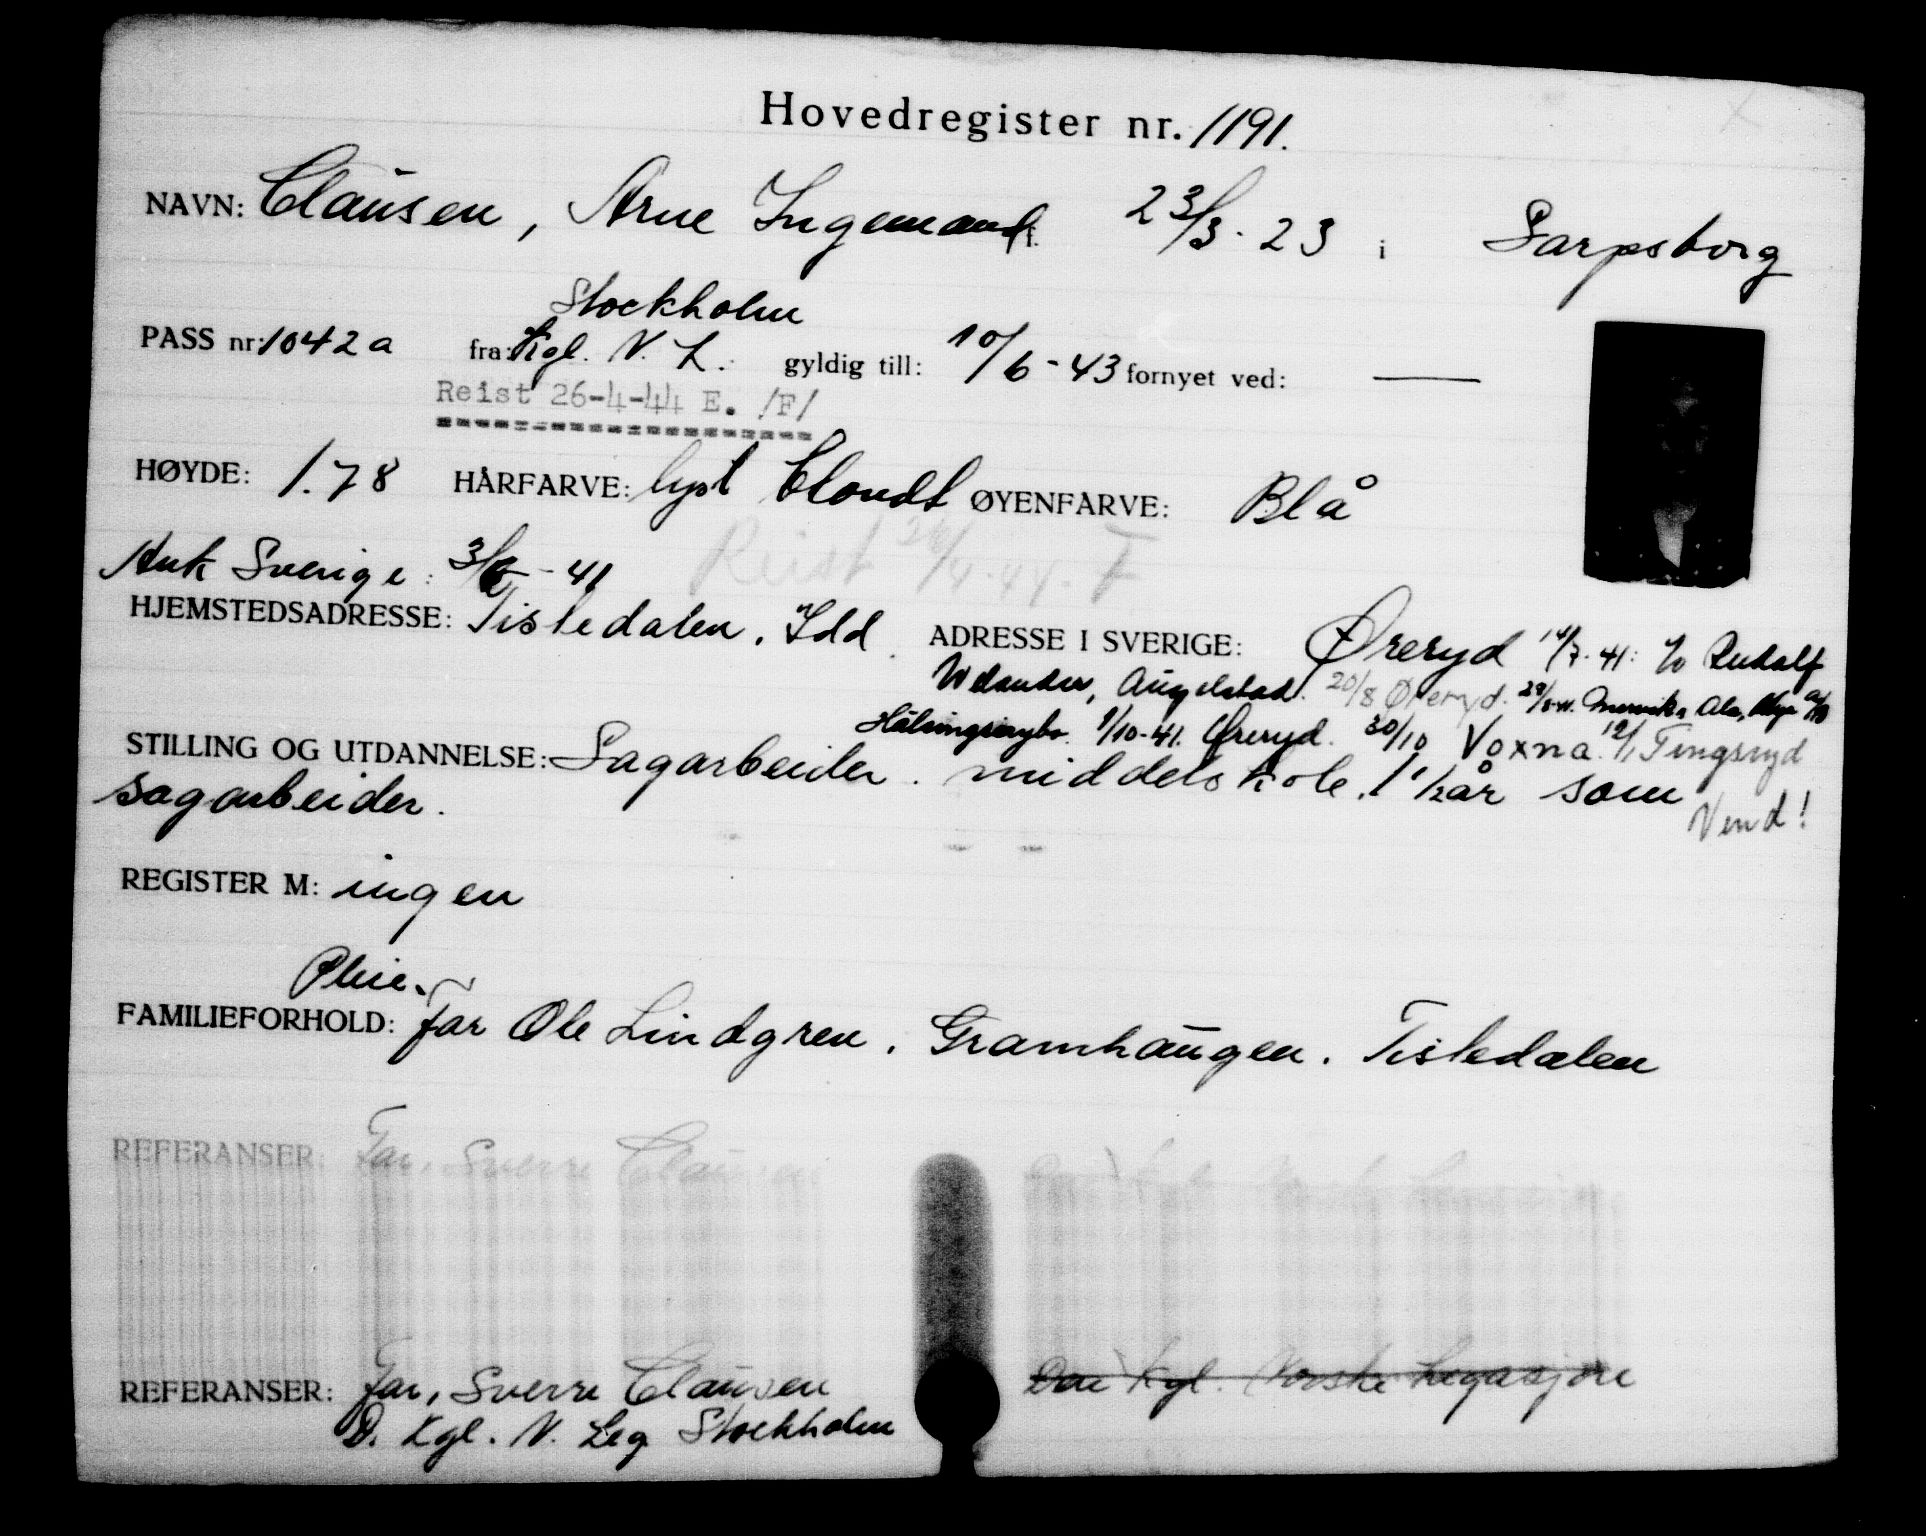 Hovedregister nr. 1191.
NAVN: Clausen, Arne Ingemand f. 23/3 - 23 i Sarpsborg
Stockholm
PASS nr: 1042a fra: Kgl. N. L. gyldig till: 10/6 - 43 fornyet ved: —
Reist 26-4-44 E. /F/
HØYDE: 1.78 HÅRFARVE: lyst blondt ØYENFARVE: Blå
Reist 26/4-44. F
Ank Sverige: 3/6 - 41
HJEMSTEDSADRESSE: Tistedalen, Idd. ADRESSE I SVERIGE: Øreryd 14/7-41: c/o Rudolf
Welander, Augelstad. 20/8 Øreryd.
Hälsingenybo 9/10-41. Øreryd. 30/10 Voxna 12/1 Tingsryd
STILLING OG UTDANNELSE: Sagarbeider. middelskole. 1 1/2 år som
sagarbeider. Vend!
REGISTER M: ingen
Pleie-
FAMILIEFORHOLD: far Ole Lindgren. Gramhaugen. Tistedalen
REFERANSER: Far, Sverre Clausen
REFERANSER: Far, Sverre Clausen Det Kgl. Norske Legasjon
D. Kgl. N. Leg Stockholm